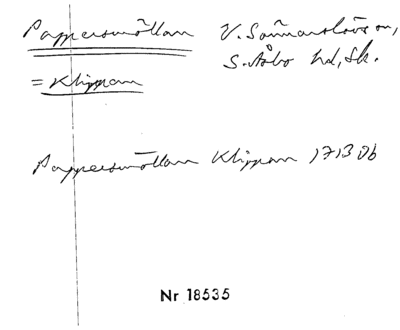 Pappersmöllan V. Sönnarslövs sn,
S. Åsbo hd, Sk.
= Klippan
Pappersmöllan Klippan 1713 Db
Nr 18535